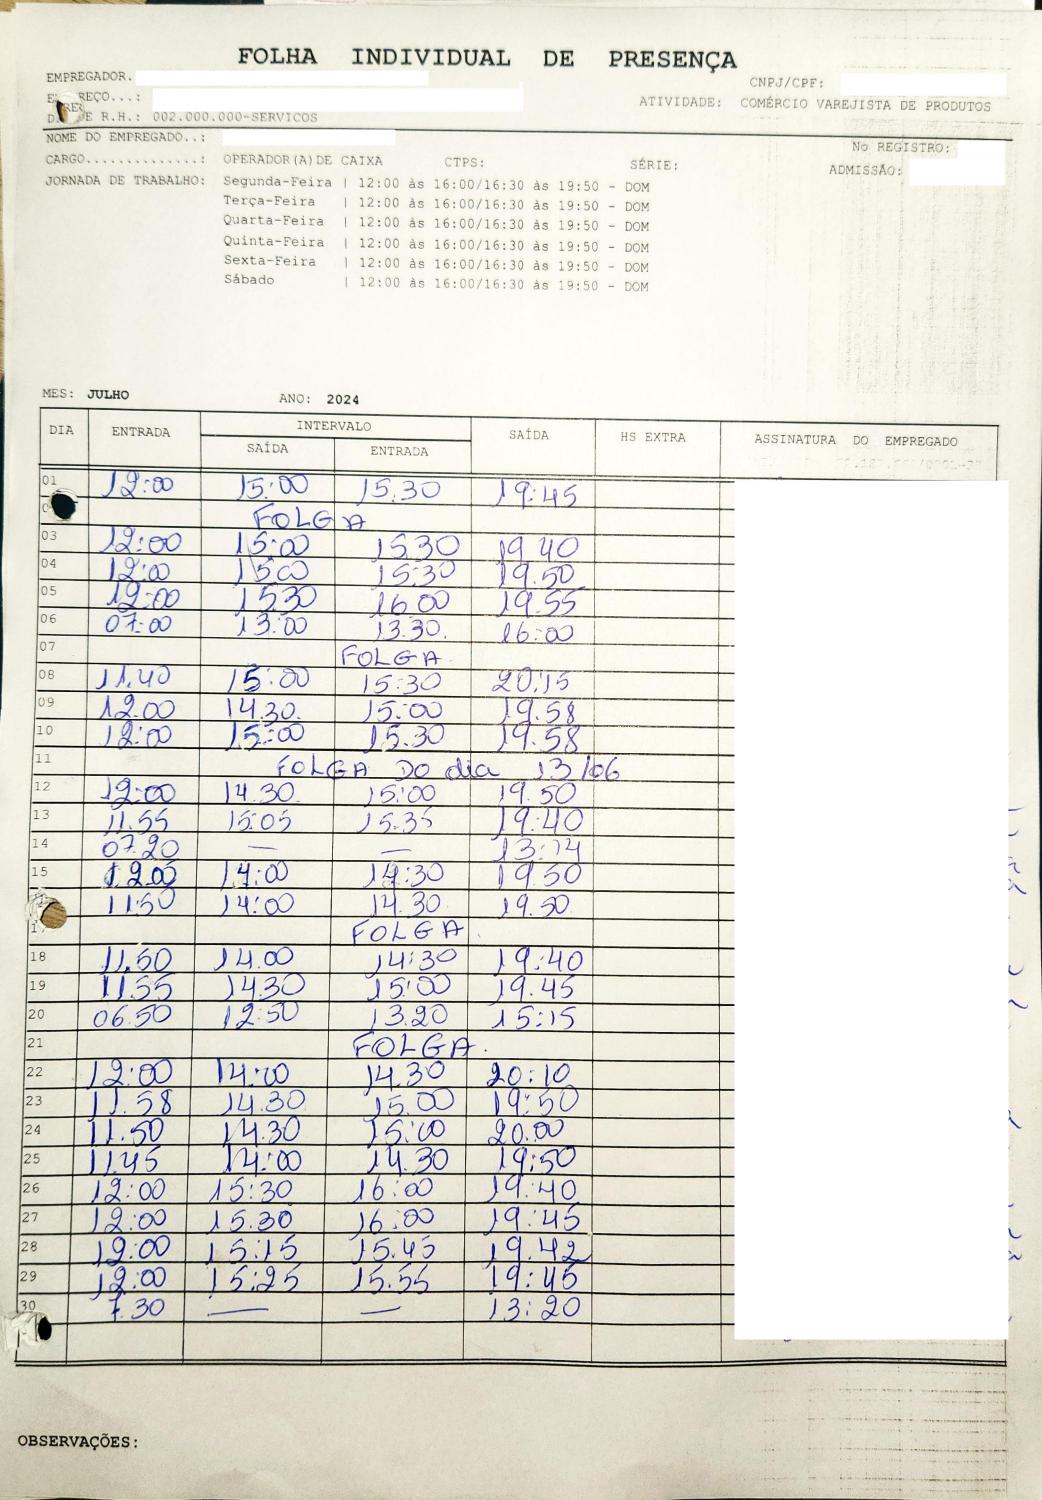 FOLHA INDIVIDUAL DE PRESENÇA
EMPREGADOR.
CNPJ/CPF:
REÇO...:
ATIVIDADE: COMÉRCIO VAREJISTA DE PRODUTOS
E R.H.: 002.000.000-SERVICOS
NOME DO EMPREGADO..:
No REGISTRO:
CARGO.............: OPERADOR(A)DE CAIXA CTPS: SÉRIE:
ADMISSÃO:
JORNADA DE TRABALHO: Segunda-Feira | 12:00 às 16:00/16:30 às 19:50 - DOM
Terça-Feira | 12:00 às 16:00/16:30 às 19:50 - DOM
Quarta-Feira | 12:00 às 16:00/16:30 às 19:50 - DOM
Quinta-Feira | 12:00 às 16:00/16:30 às 19:50 - DOM
Sexta-Feira | 12:00 às 16:00/16:30 às 19:50 - DOM
Sábado | 12:00 às 16:00/16:30 às 19:50 - DOM
MES: JULHO ANO: 2024
DIA ENTRADA INTERVALO SAÍDA HS EXTRA ASSINATURA DO EMPREGADO
SAÍDA ENTRADA
01 12:00 15:00 15.30 19:45
FOLGA
03 12:00 15:00 15.30 19.40
04 12:00 1500 15:30 19.50
05 12:00 1530 16.00 19.55
06 07:00 13:00 13.30. 16:00
07 FOLGA.
08 11.40 15:00 15:30 20:15
09 12.00 14.30. 15:00 19.58
10 12:00 15:00 15.30 19.58
11 FOLGA DO dia 13/06
12 12:00 14.30. 15:00 19.50
13 11.55 15:05 15.35 19:40
14 07.20 — — 13:14
15 12.00 14:00 14:30 19.50
11:50 14:00 14.30. 19.50.
17 FOLGA.
18 11.50 14.00 14:30 19:40
19 11.55 14.30 15:00 19.45
20 06.50 12:50 13.20 15:15
21 FOLGA.
22 12:00 14:00 14.30 20:10
23 11.58 14.30 15.00 19:50
24 11.50 14.30 15:00 20.00
25 11.45 14:00 14.30 19:50
26 12:00 15:30 16:00 19:40
27 12:00 15.30 16:00 19:45
28 12:00 15:15 15.45 19.42
29 12:00 15:25 15.55 19:45
30 7.30 — — 13:20
OBSERVAÇÕES: